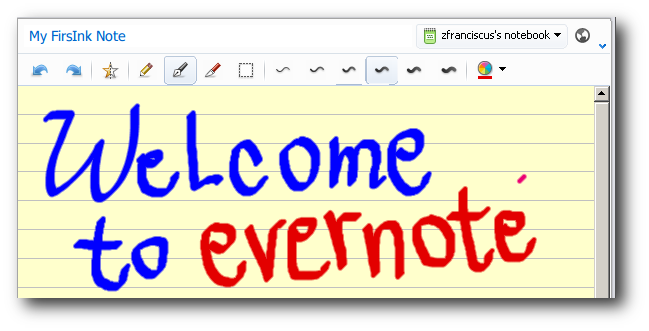 My FirsInk Note
zfranciscus's notebook
Welcome
to evernote